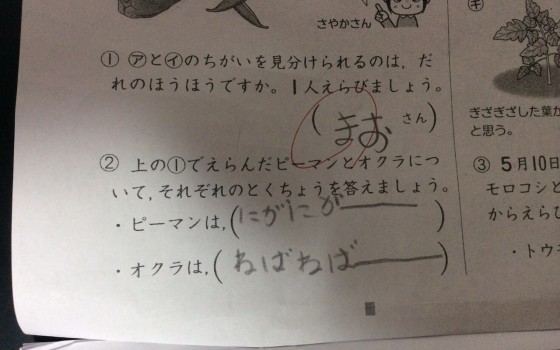 さやかさん
㋖
① ㋐と㋑のちがいを見分けられるのは、だ
れのほうほうですか。1人えらびましょう。
(まおさん)
② 上の①でえらんだピーマンとオクラにつ
いて、それぞれのとくちょうを答えましょう。
・ピーマンは、(にがにが――)
・オクラは、(ねばねば――)
ぎざぎざした葉か
と思う。
③ 5月10日
モロコシと
からえらび
・トウ